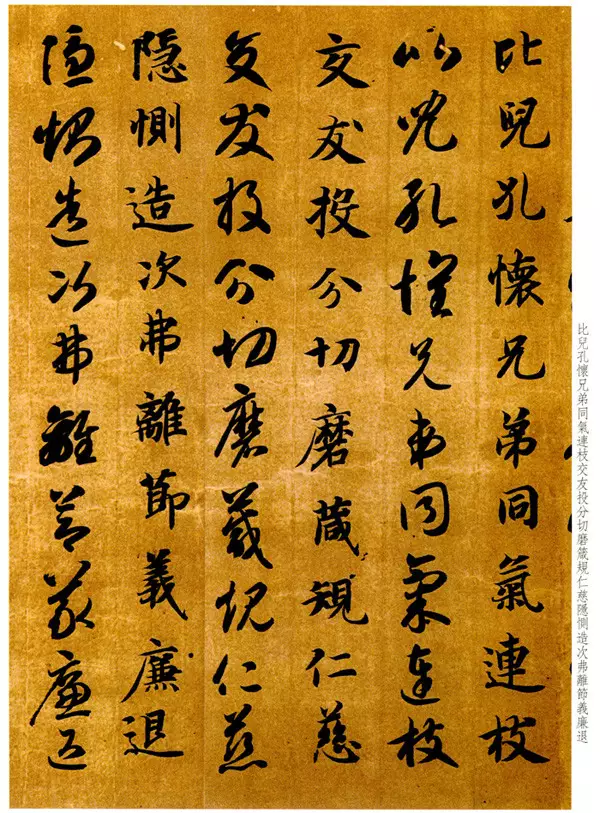 比兒孔懷兄弟同氣連枝交友投分切磨箴規仁慈隱惻造次弗離節義廉退
比兒孔懷兄弟同氣連枝
比兒孔懷兄弟同氣連枝
交友投分切磨箴規仁慈
交友投分切磨箴規仁慈
隱惻造次弗離節義廉退
隱惻造次弗離節義廉退